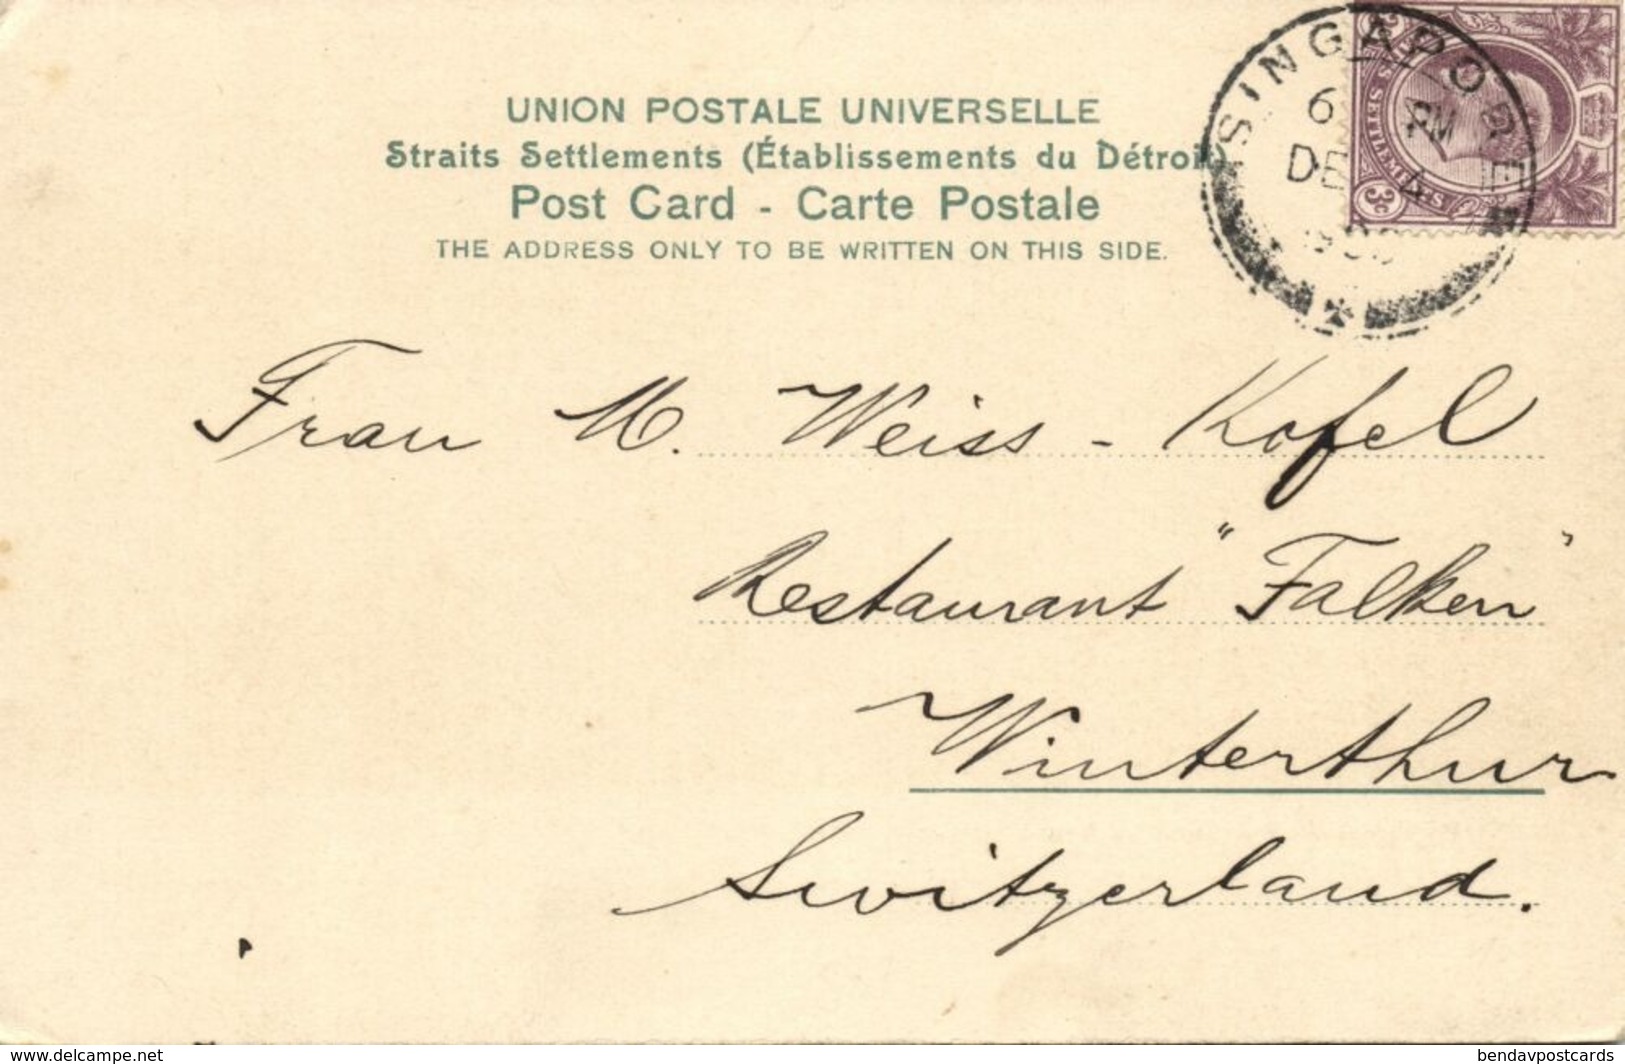 UNION POSTALE UNIVERSELLE
Straits Settlements (Établissements du Détroit)
Post Card - Carte Postale
THE ADDRESS ONLY TO BE WRITTEN ON THIS SIDE.
SINGAPORE
6 PM
DE 4
STRAITS SETTLEMENTS
3c
3c
Frau M. Weiss - Kofel
Restaurant "Falken"
Winterthur
Switzerland.
www.delcampe.net
bendavpostcards